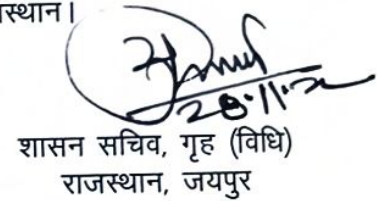 स्थान।
28.11.22
शासन सचिव, गृह (विधि)
राजस्थान, जयपुर